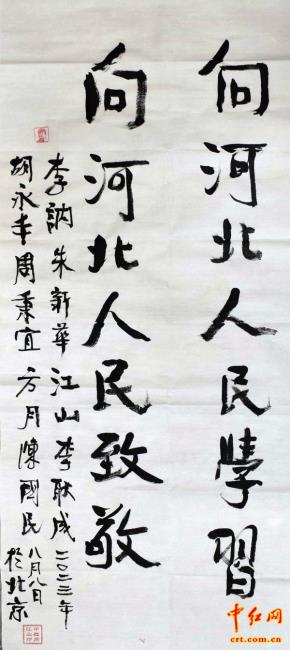 向河北人民學習
向河北人民致敬
李訥 朱新華 江山 李耿成 二〇二三年
胡永 周秉宜 方月 陳國民 八月八日
於北京
中红网
crt.com.cn